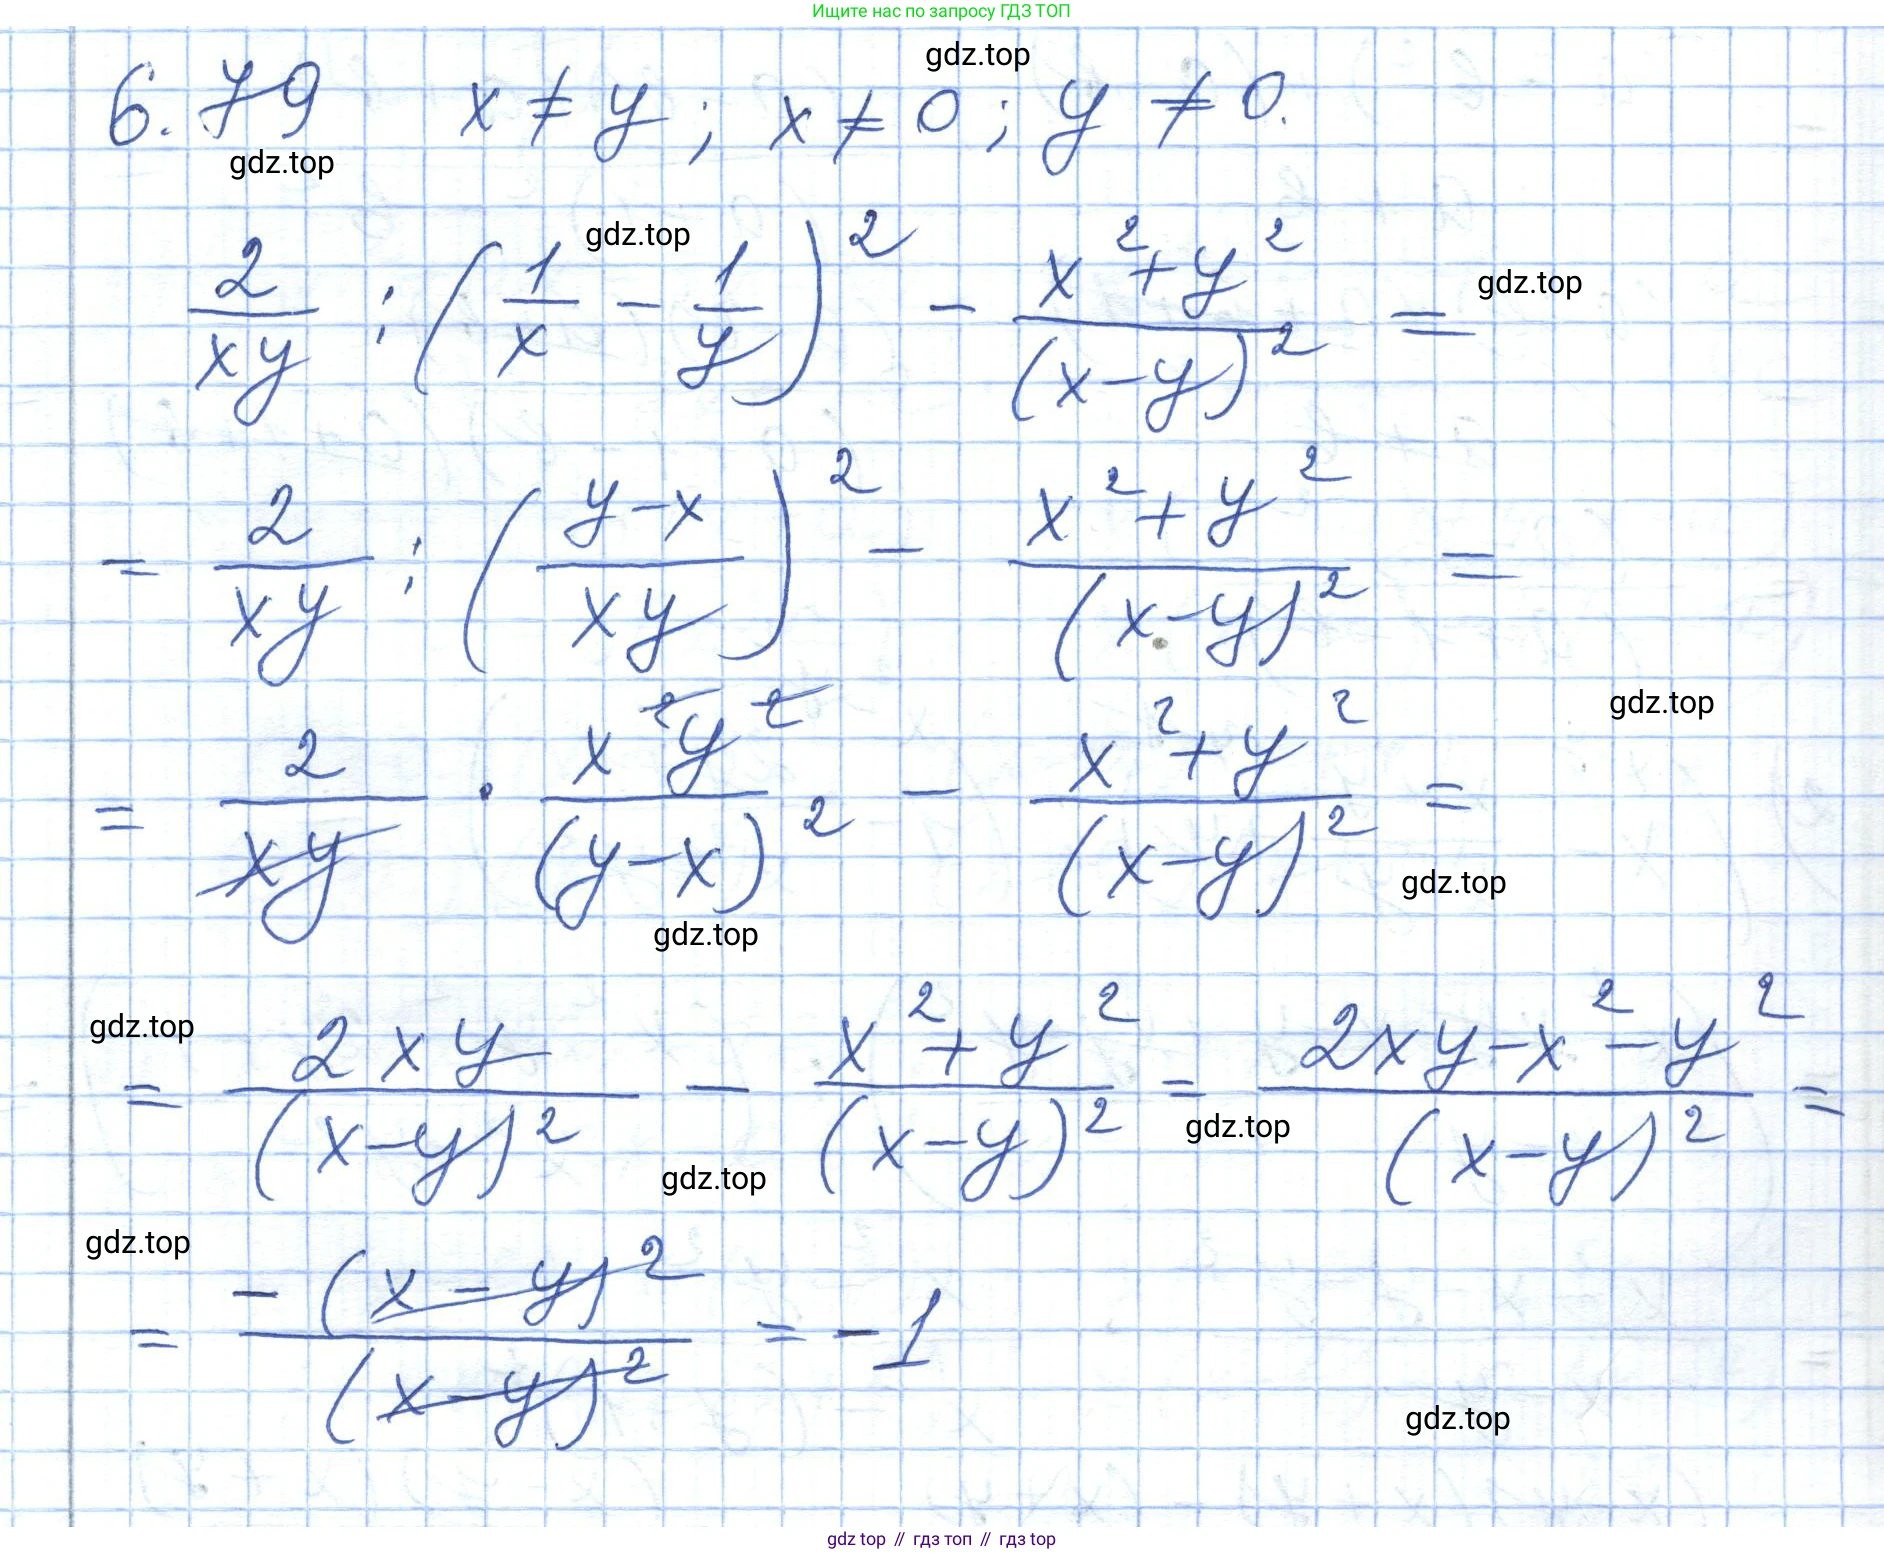 Ищите нас по запросу ГДЗ ТОП
gdz.top
6.79 x ≠ y; x ≠ 0; y ≠ 0.
gdz.top
gdz.top
2/(xy) : (1/x - 1/y)² - (x² + y²)/(x-y)² =
gdz.top
= 2/(xy) : ((y-x)/(xy))² - (x² + y²)/(x-y)² =
gdz.top
= 2/(xy) · (x²y²)/(y-x)² - (x² + y²)/(x-y)² =
gdz.top
gdz.top
gdz.top
= 2xy/(x-y)² - (x² + y²)/(x-y)² = (2xy - x² - y²)/(x-y)² =
gdz.top
gdz.top
gdz.top
= -(x-y)²/(x-y)² = -1
gdz.top
gdz top // гдз топ // гдз top